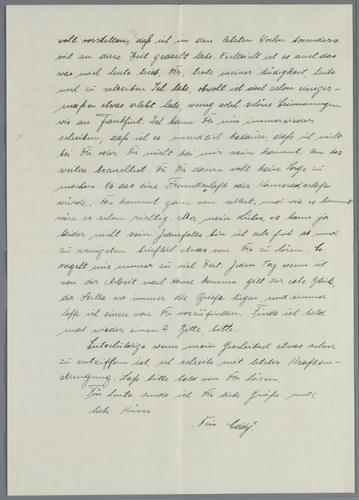 wohl vorstellen, daß ich in den letzten Wochen besonders
viel an diese Zeit gedacht habe. Vielleicht ist es auch das
was mich heute trieb, Dir, trotz meiner Müdigkeit, heute
noch zu schreiben. Ich habe, obwohl ich doch schon einiger-
maßen etwas erlebt habe wenig solch schöne Erinnerungen
wie an Frankfurt. Ich kann Dir nur immerwieder
schreiben, daß ich es unendlich bedaure, daß ich nicht
bei Dir oder Du nicht bei mir sein kannst. Um das
weitere brauchtest Du Dir dann wohl keine Sorge zu
machen. Ob das eine Freundschaft oder Kameradschaft
würde. Das kommt ganz von selbst, und wie es kommt
wäre es schon richtig. Aber mein Liebes, es kann ja
leider nicht sein, jedenfalls bin ich sehr froh ab und
zu wenigstens brieflich etwas von Dir zu hören. So
vergeht mir immer zu viel Zeit. Jeden Tag wenn ich
von der Arbeit nach Hause komme gilt der erste Blick,
der Stelle wo immer die Briefe liegen und immer
hoffe ich einen von Dir vorzufinden. Finde ich bald
mal wieder einen? Bitte, bitte.
Entschuldige wenn mein Geschreibsel etwas schwer
zu entziffern ist, ich schreibe mit letzter Kraftan-
strengung. Laß bitte bald von Dir hören.
Für heute sende ich Dir liebe Grüße und
liebe Küsse
Dein Eddy.